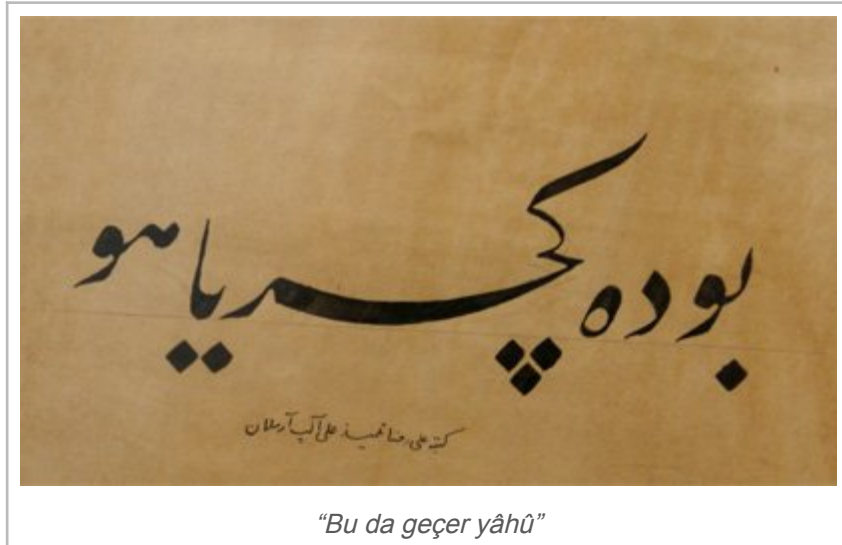 بو ده كچر یا هو
كتبه علی رضا تلمیذ علی آلپ آرسلان
“Bu da geçer yâhû”